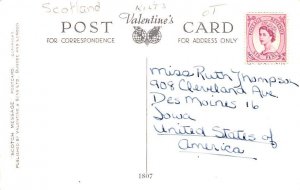 Scotland
POST
Valentine's
CARD
FOR CORRESPONDENCE
FOR ADDRESS ONLY
Miss Ruth Thompson
908 Cleveland Ave
Des Moines 16
Iowa
United States of
America
SCOTCH MESSAGE POSTCARD
PUBLISHED BY VALENTINE & SONS, LTD. DUNDEE AND LONDON
1807